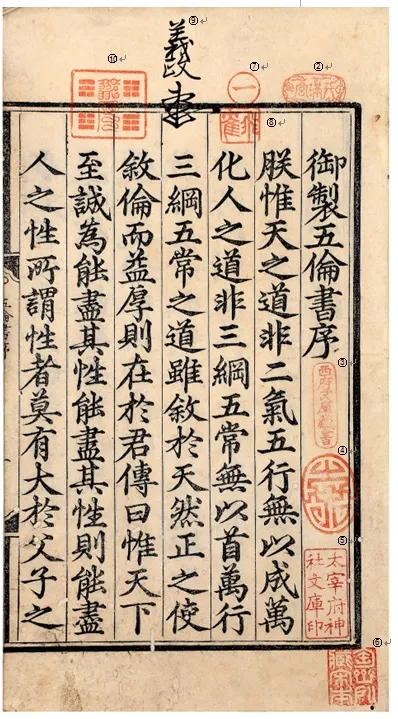 ⑨
義政
⑩
⑦
一
⑧
②
御製五倫書序
朕惟天之道非二氣五行無以成萬
化人之道非三綱五常無以首萬行
三綱五常之道雖敘於天然正之使
敘倫而益厚則在於君傳曰惟天下
至誠為能盡其性能盡其性則能盡
人之性所謂性者莫有大於父子之
五倫書序
③
④
⑤
太宰府神
社文庫印
⑥